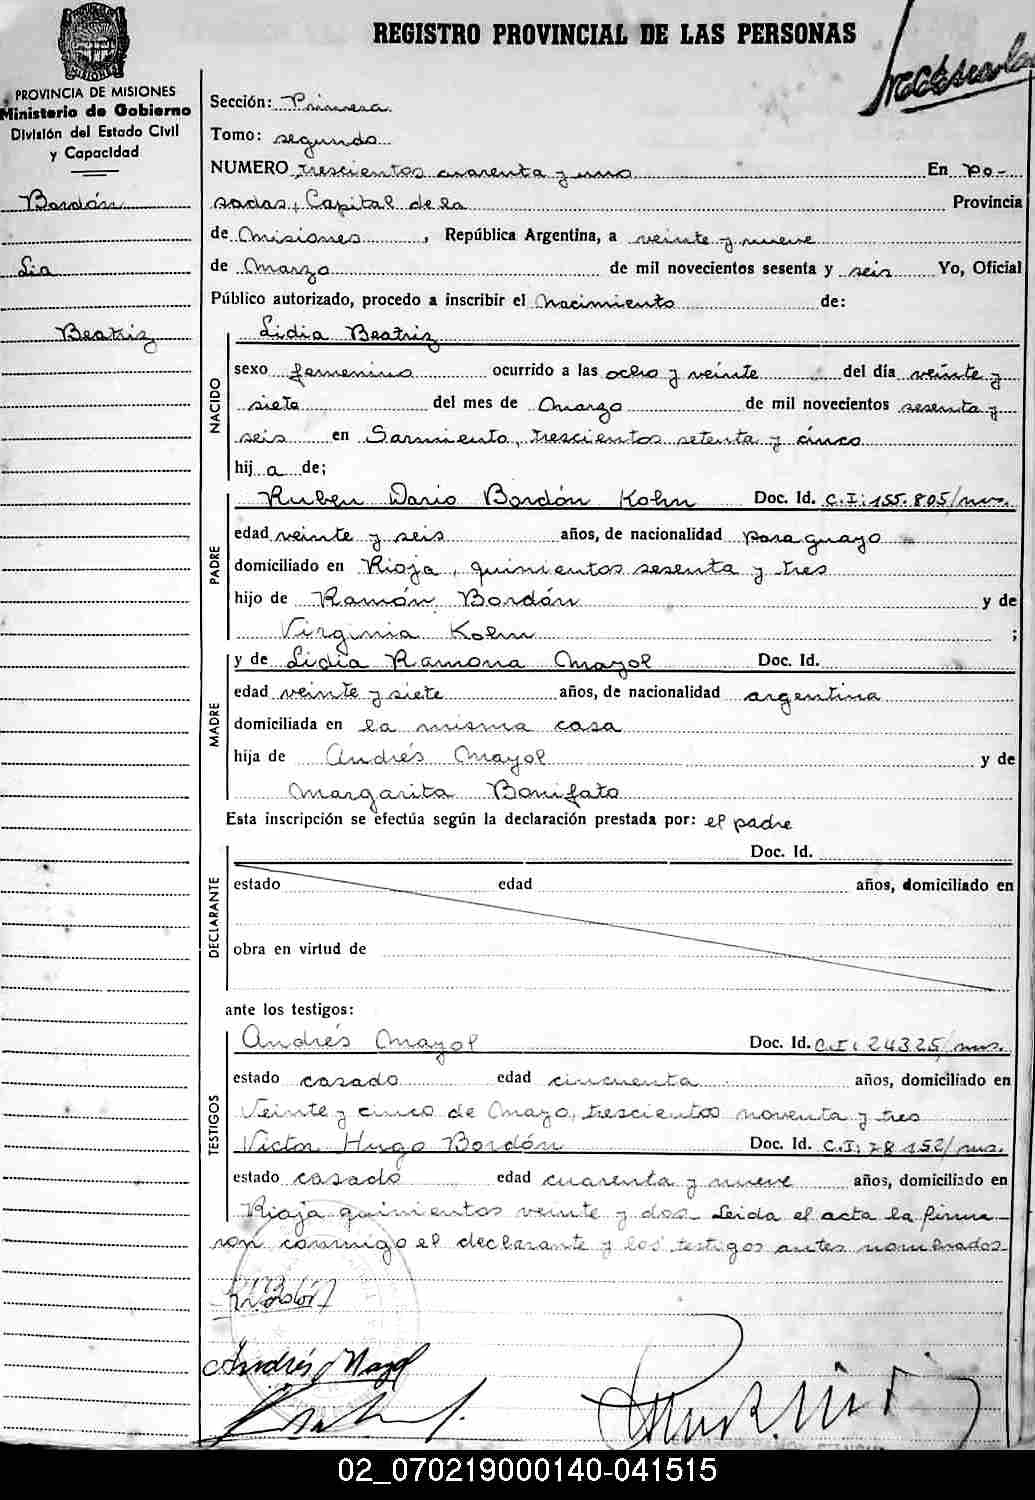 REGISTRO PROVINCIAL DE LAS PERSONAS
MISIONES
PROVINCIA DE MISIONES
Ministerio de Gobierno
División del Estado Civil
y Capacidad
Bordón
Lia
Beatriz
Sección: Primera
Tomo: segundo
NUMERO trescientos cuarenta y uno En Po-
sadas, Capital de la Provincia
de Misiones, República Argentina, a veinte y nueve
de Marzo de mil novecientos sesenta y seis Yo, Oficial
Público autorizado, procedo a inscribir el Nacimiento de:
NACIDO
Lidia Beatriz
sexo femenino ocurrido a las ocho y veinte del día veinte y
siete del mes de Marzo de mil novecientos sesenta y
seis en Sarmiento, trescientos setenta y cinco
hij a de;
PADRE
Ruben Dario Bordón Kohn Doc. Id. C.I: 155.805/mns.
edad veinte y seis años, de nacionalidad paraguayo
domiciliado en Rioja, quinientos sesenta y tres
hijo de Ramón Bordón y de
Virginia Kohn ;
MADRE
y de Lidia Ramona Mayol Doc. Id.
edad veinte y siete años, de nacionalidad argentina
domiciliada en la misma casa
hija de Andrés Mayol y de
Margarita Bonifato
Esta inscripción se efectúa según la declaración prestada por: el padre
DECLARANTE
Doc. Id.
estado edad años, domiciliado en
obra en virtud de
ante los testigos:
TESTIGOS
Andrés Mayol Doc. Id. C.I: 24325/mns.
estado casado edad cincuenta años, domiciliado en
Veinte y cinco de Mayo, trescientos noventa y tres
Victor Hugo Bordón Doc. Id. C.I: 78152/mns.
estado casado edad cuarenta y nueve años, domiciliado en
Rioja quinientos veinte y dos Leida el acta la firma-
ron conmigo el declarante y los testigos antes nombrados
Andrés Mayol
02_070219000140-041515